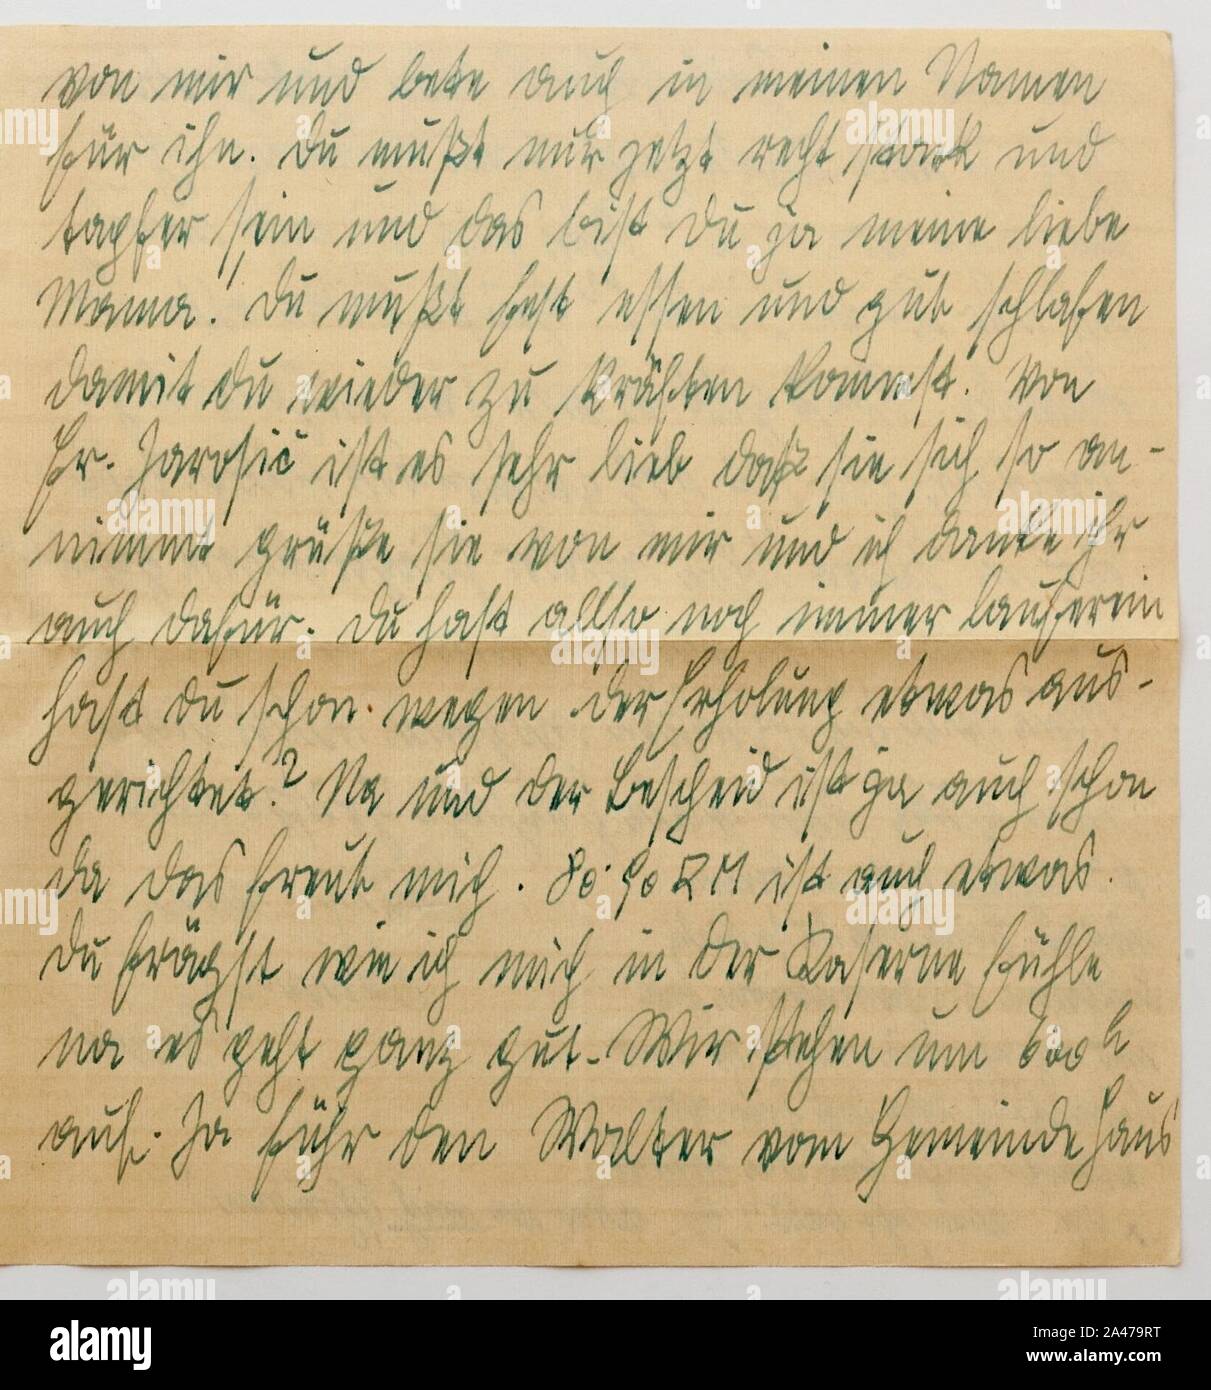 von mir und bete auch in meinen Namen
für ihn. Du mußt nur jetzt recht stark und
tapfer sein und das bist du ja meine liebe
Mama. Du mußt fest essen und gut schlafen
damit du wieder zu Kräften kommst. Von
Fr. Jarosič ist es sehr lieb daß sie sich so an-
nimmt grüße sie von mir und ich danke ihr
auch dafür. Du hast allso noch immer lauferein
hast du schon wegen der Erholung etwas aus-
gerichtet? Na und der Bescheid ist ja auch schon
da das freut mich. 80.90 RM ist auch etwas.
Du frägst wie ich mich in der Kaserne fühle
na es geht ganz gut. Wir stehen um 600 h
auf. Ja führ den Walter vom Gemeindehaus
alamy
Image ID: 2A479RT
www.alamy.com